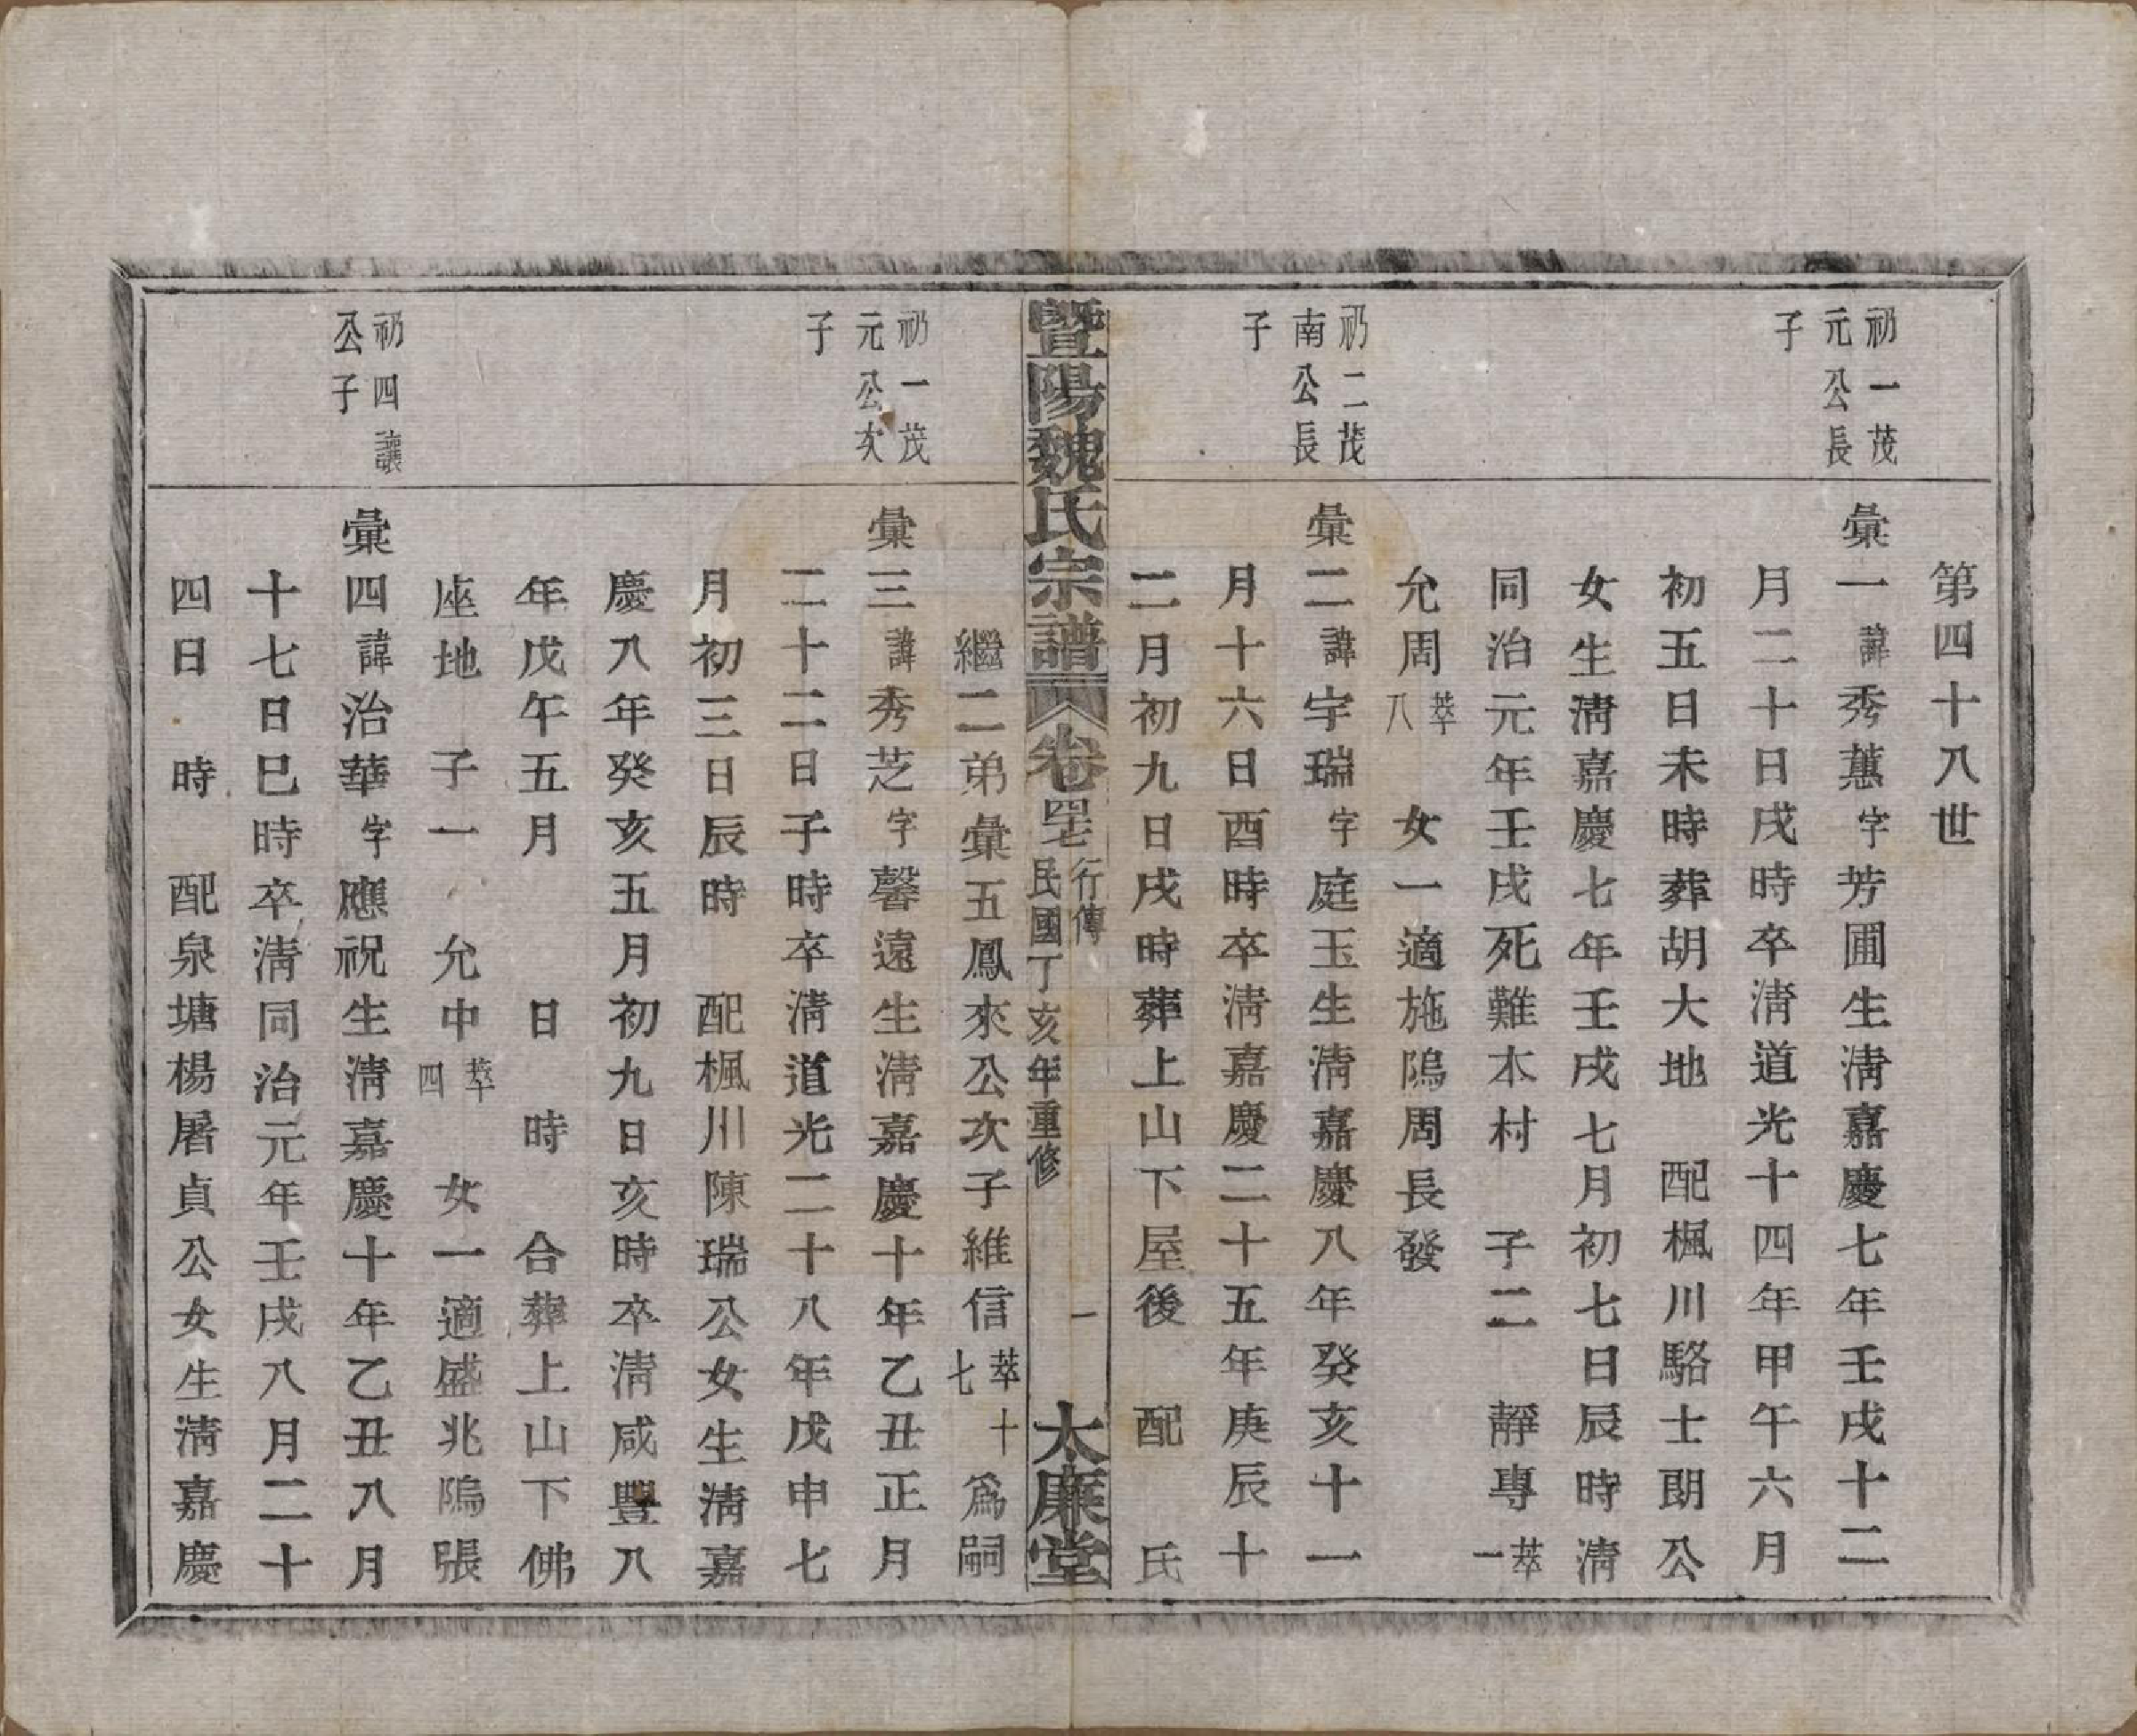 第四十八世
礽一茂
元公長
子
彙一諱秀蕙字芳圃生淸嘉慶七年壬戌十二
月二十日戌時卒淸道光十四年甲午六月
初五日未時葬胡大地　配楓川駱士朗公
女生淸嘉慶七年壬戌七月初七日辰時淸
同治元年壬戌死難本村　子二　靜專萃一
允周萃八　女一適施隖周長發
礽二茂
南公長
子
彙二諱宇瑞字庭玉生淸嘉慶八年癸亥十一
月十六日酉時卒淸嘉慶二十五年庚辰十
二月初九日戌時葬上山下屋後　配　氏
暨陽魏氏宗譜　卷四七　行傳　民國丁亥年重修　一　太廉堂
繼二弟彙五鳳來公次子維信萃十七爲嗣
礽一茂
元公次
子
彙三諱秀芝字馨遠生淸嘉慶十年乙丑正月
二十二日子時卒淸道光二十八年戊申七
月初三日辰時　配楓川陳瑞公女生淸嘉
慶八年癸亥五月初九日亥時卒淸咸豐八
年戊午五月　日　時　合葬上山下佛
座地　子一　允中萃四　女一適盛兆隖張
礽四讓
公子
彙四諱治華字應祝生淸嘉慶十年乙丑八月
十七日巳時卒淸同治元年壬戌八月二十
四日　時　配泉塘楊屠貞公女生淸嘉慶